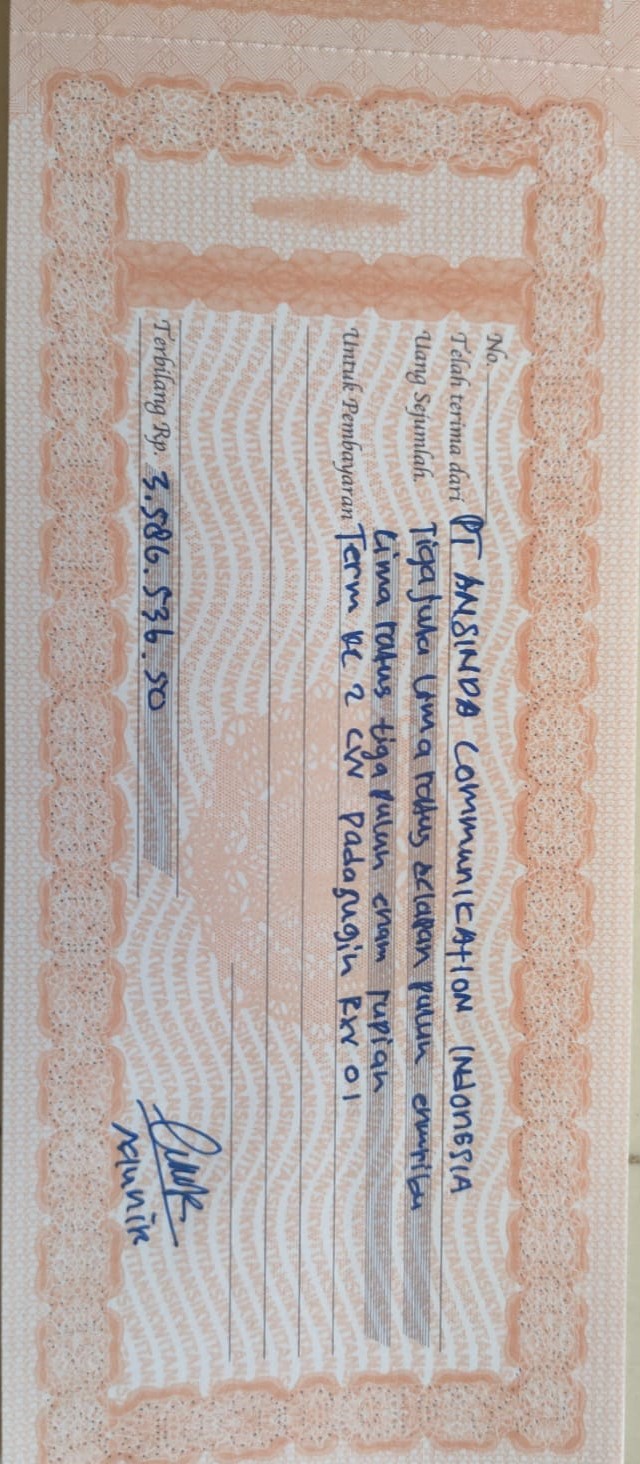 No.
Telah terima dari PT ANSINDA COMMUNICATION INDONESIA
Uang Sejumlah. Tiga juta Lima ratus delapan puluh enam ribu
Lima ratus tiga puluh enam rupiah
Untuk Pembayaran Term ke 2 CW Padasugih RXV 01
Terbilang Rp. 3.586.536.50